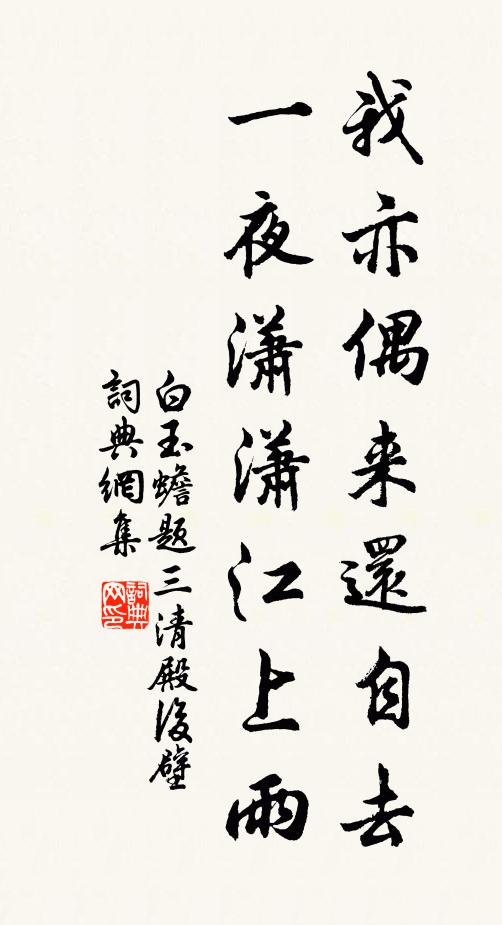 我亦偶来還自去
一夜瀟瀟江上雨
白玉蟾题三清殿後壁
詞典網集
詞典网印